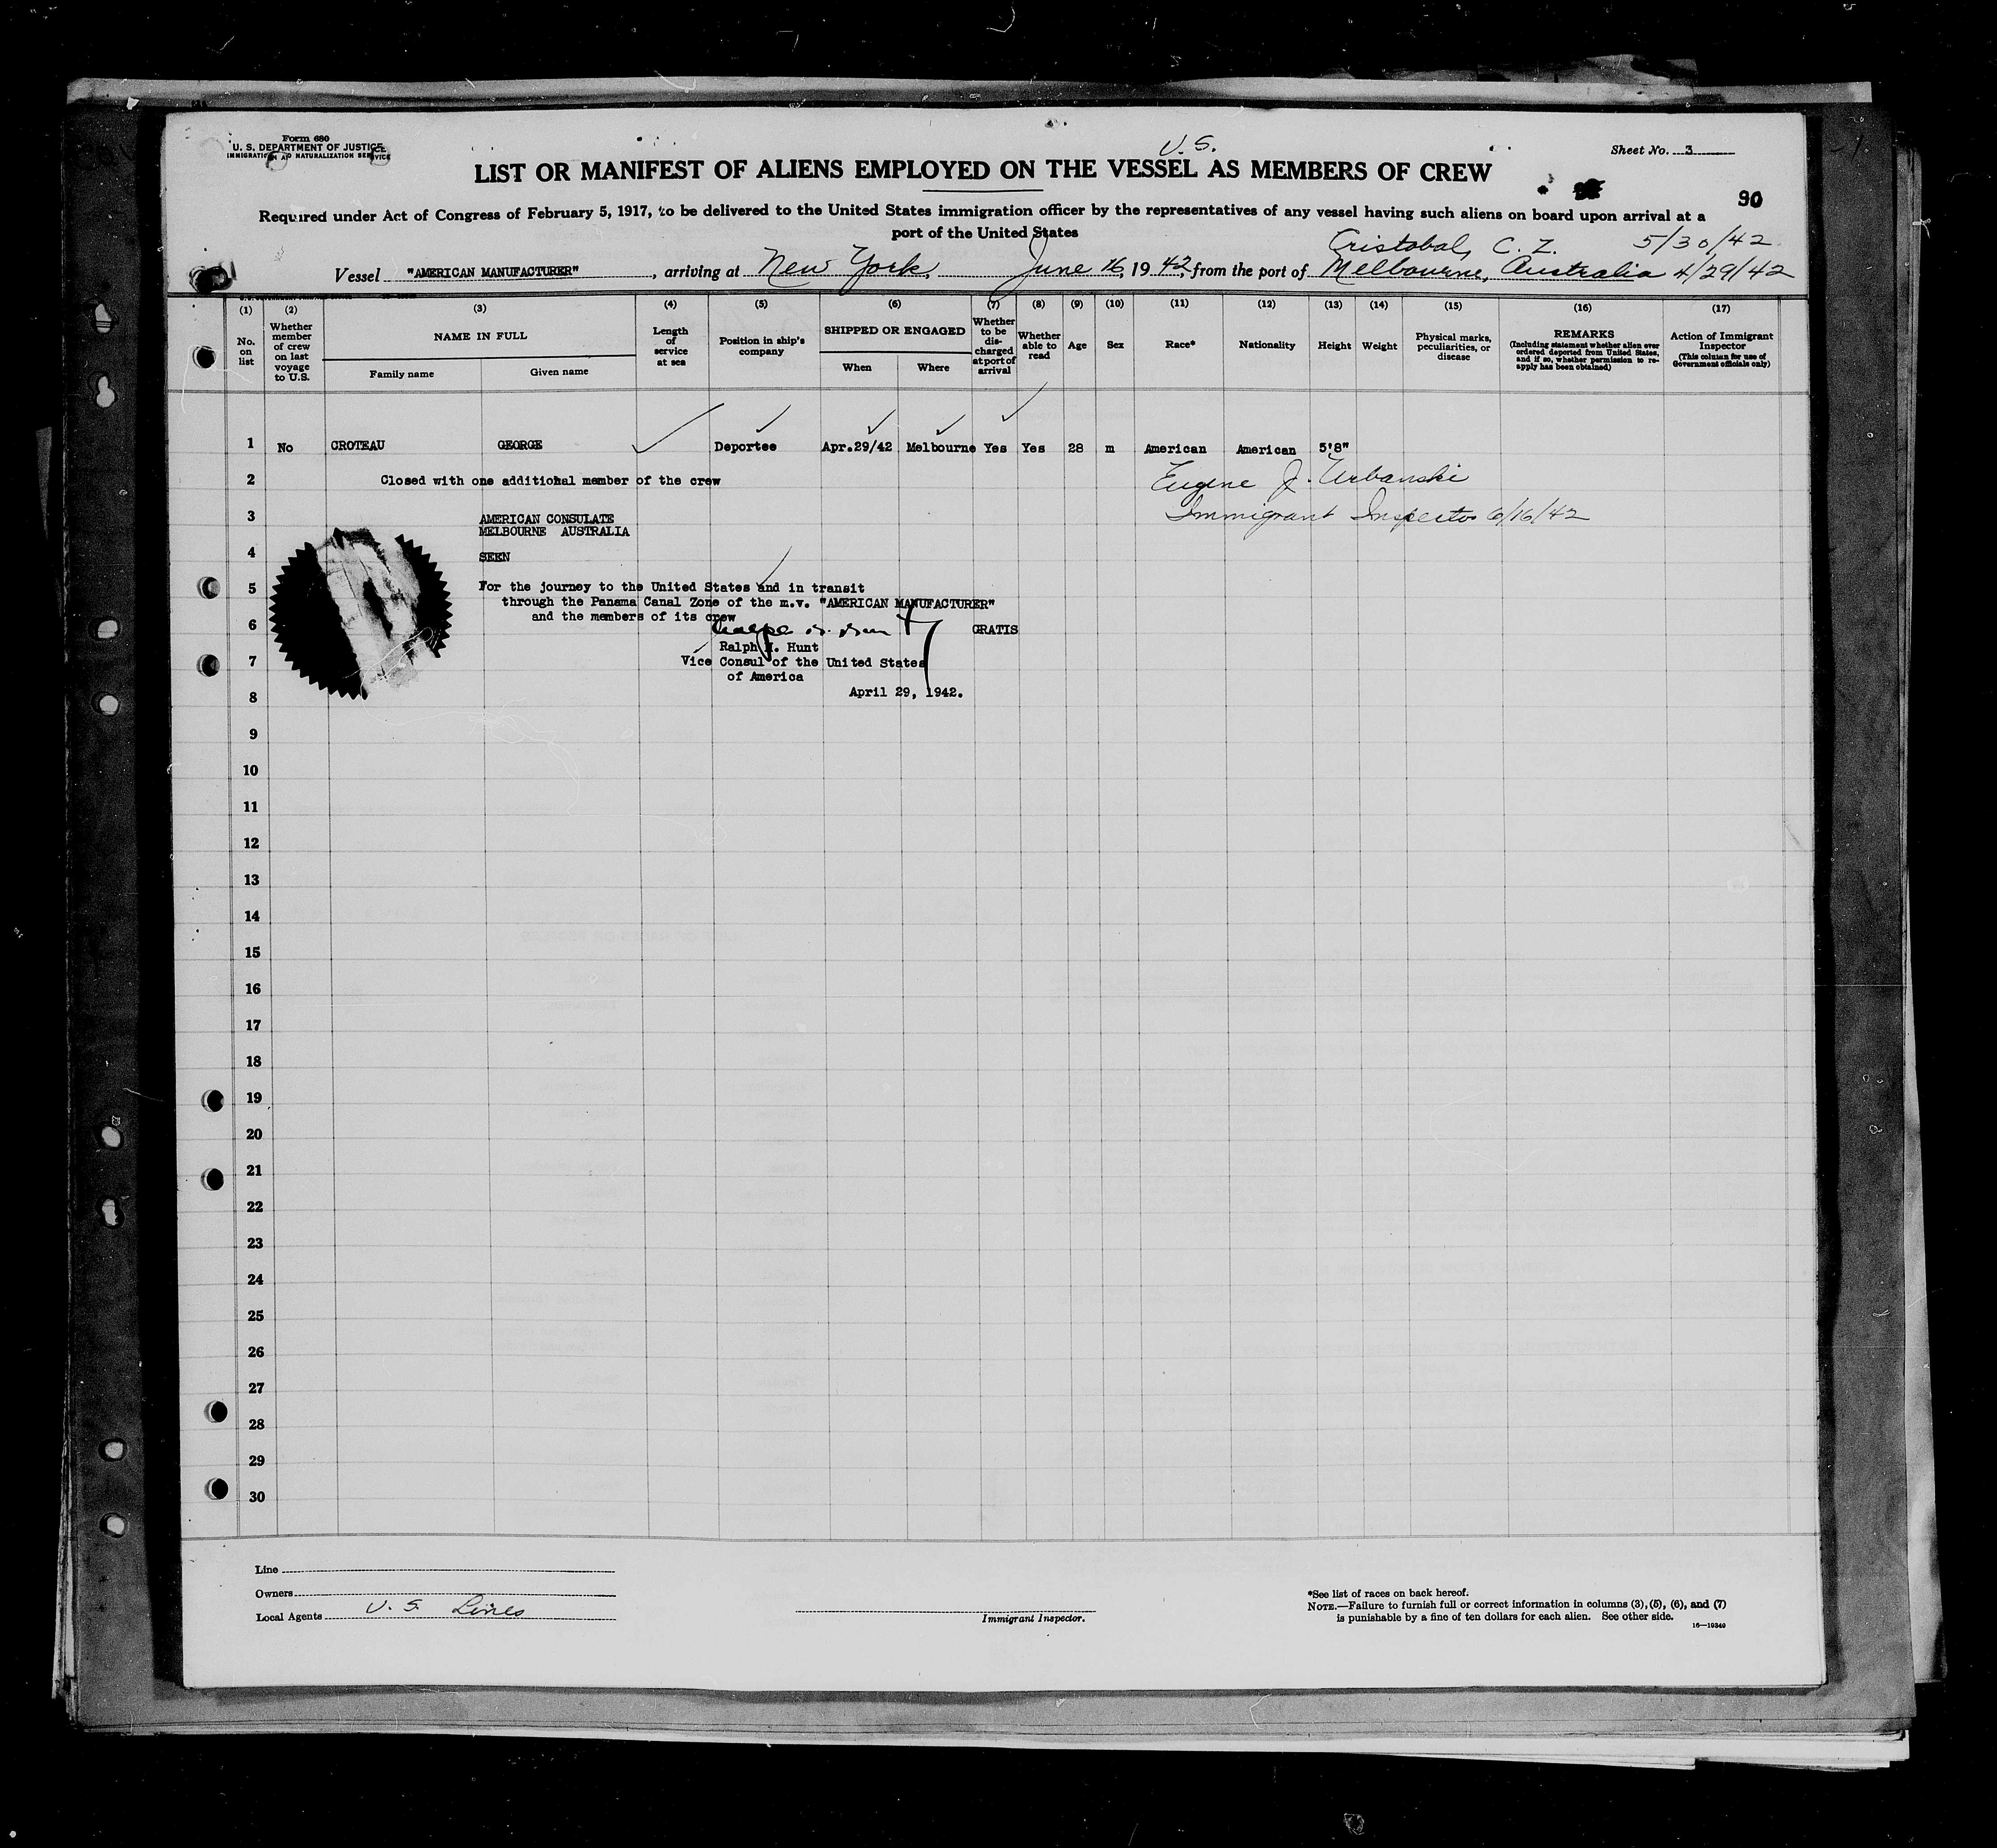 Form 680
U. S. DEPARTMENT OF JUSTICE
IMMIGRATION AND NATURALIZATION SERVICE
U.S.
Sheet No. 3
LIST OR MANIFEST OF ALIENS EMPLOYED ON THE VESSEL AS MEMBERS OF CREW
90
Required under Act of Congress of February 5, 1917, to be delivered to the United States immigration officer by the representatives of any vessel having such aliens on board upon arrival at a
port of the United States
Cristobal, C. Z. 5/30/42
Vessel "AMERICAN MANUFACTURER", arriving at New York, June 16, 1942, from the port of Melbourne, Australia 4/29/42
(1) (2) (3) (4) (5) (6) (7) (8) (9) (10) (11) (12) (13) (14) (15) (16) (17)
No. on list
Whether member of crew on last voyage to U.S.
NAME IN FULL
Family name
Given name
Length of service at sea
Position in ship's company
SHIPPED OR ENGAGED
When
Where
Whether to be discharged at port of arrival
Whether able to read
Age
Sex
Race*
Nationality
Height
Weight
Physical marks, peculiarities, or disease
REMARKS
(Including statement whether alien ever ordered deported from United States, and if so, whether permission to reapply has been obtained)
Action of Immigrant Inspector
(This column for use of Government officials only)
1 No CROTEAU GEORGE Deportee Apr.29/42 Melbourne Yes Yes 28 m American American 5'8"
2 Closed with one additional member of the crew Eugene J. Urbanski
3 AMERICAN CONSULATE Immigrant Inspector 6/16/42
MELBOURNE AUSTRALIA
4 SEEN
5 For the journey to the United States and in transit
through the Panama Canal Zone of the m.v. "AMERICAN MANUFACTURER"
and the members of its crew
6 GRATIS
Ralph H. Hunt
7 Vice Consul of the United States
of America
8 April 29, 1942.
9
10
11
12
13
14
15
16
17
18
19
20
21
22
23
24
25
26
27
28
29
30
Line
Owners
Local Agents U. S. Lines
Immigrant Inspector.
*See list of races on back hereof.
NOTE.—Failure to furnish full or correct information in columns (3), (5), (6), and (7)
is punishable by a fine of ten dollars for each alien. See other side.
16—19349